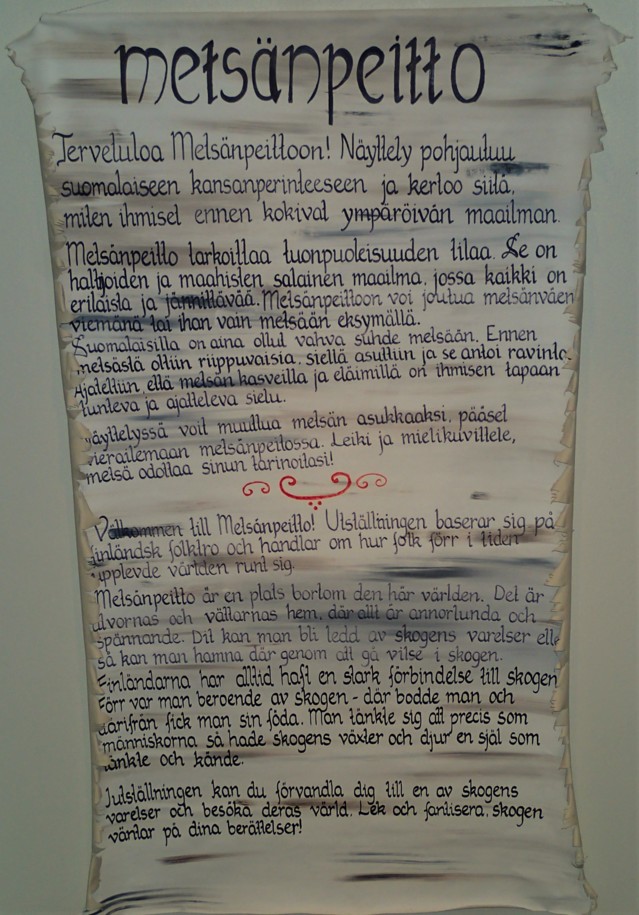 metsänpeitto
Tervetuloa Metsänpeittoon! Näyttely pohjautuu
suomalaiseen kansanperinteeseen ja kertoo siitä,
miten ihmiset ennen kokivat ympäröivän maailman.
Metsänpeitto tarkoittaa tuonpuoleisuuden tilaa. Se on
haltijoiden ja maahisten salainen maailma, jossa kaikki on
erilaista ja jännittävää. Metsänpeittoon voi joutua metsänväen
viemänä tai ihan vain metsään eksymällä.
Suomalaisilla on aina ollut vahva suhde metsään. Ennen
metsästä oltiin riippuvaisia, siellä asuttiin ja se antoi ravinto.
Ajateltiin, että metsän kasveilla ja eläimillä on ihmisen tapaan
tunteva ja ajatteleva sielu.
Näyttelyssä voit muuttua metsän asukkaaksi, pääset
vierailemaan metsänpeitossa. Leiki ja mielikuvittele,
metsä odottaa sinun tarinoitasi!
Välkommen till Metsänpeitto! Utställningen baserar sig på
finländsk folktro och handlar om hur folk förr i tiden
upplevde världen runt sig.
Metsänpeitto är en plats bortom den här världen. Det är
alvornas och vättarnas hem, där allt är annorlunda och
spännande. Dit kan man bli ledd av skogens varelser elle
så kan man hamna där genom att gå vilse i skogen.
Finländarna har alltid haft en stark förbindelse till skogen
Förr var man beroende av skogen - där bodde man och
därifrån fick man sin föda. Man tänkte sig att precis som
människorna så hade skogens växter och djur en själ som
tänkte och kände.
I utställningen kan du förvandla dig till en av skogens
varelser och besöka deras värld. Lek och fantisera, skogen
väntar på dina berättelser!